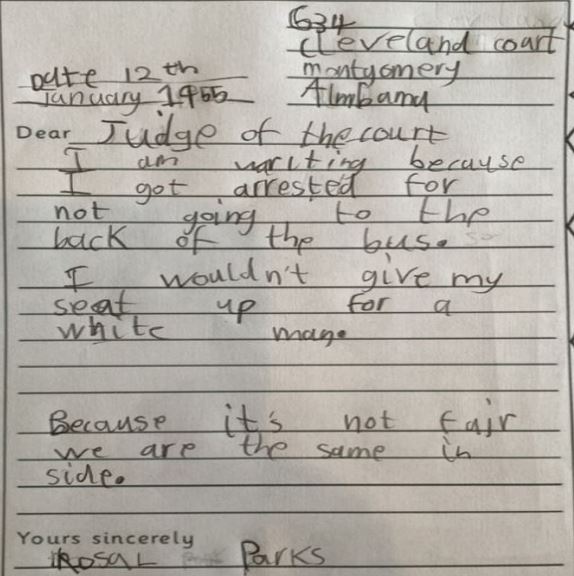 634
Cleveland court
montgomery
Almbamy
Date 12 th
January 1955
Dear Judge of the court
I am wariting because
I got arrested for
not going to the
back of the bus.
I wouldn't give my
seat up for a
white man.
Because it's not fair
we are the same in
side.
Yours sincerely
ROSAL Parks